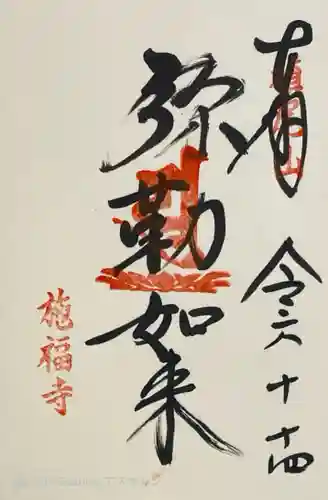 奉拝
令六 十 十四
弥勒如来
施福寺